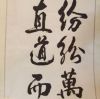 紛紛萬
直道而